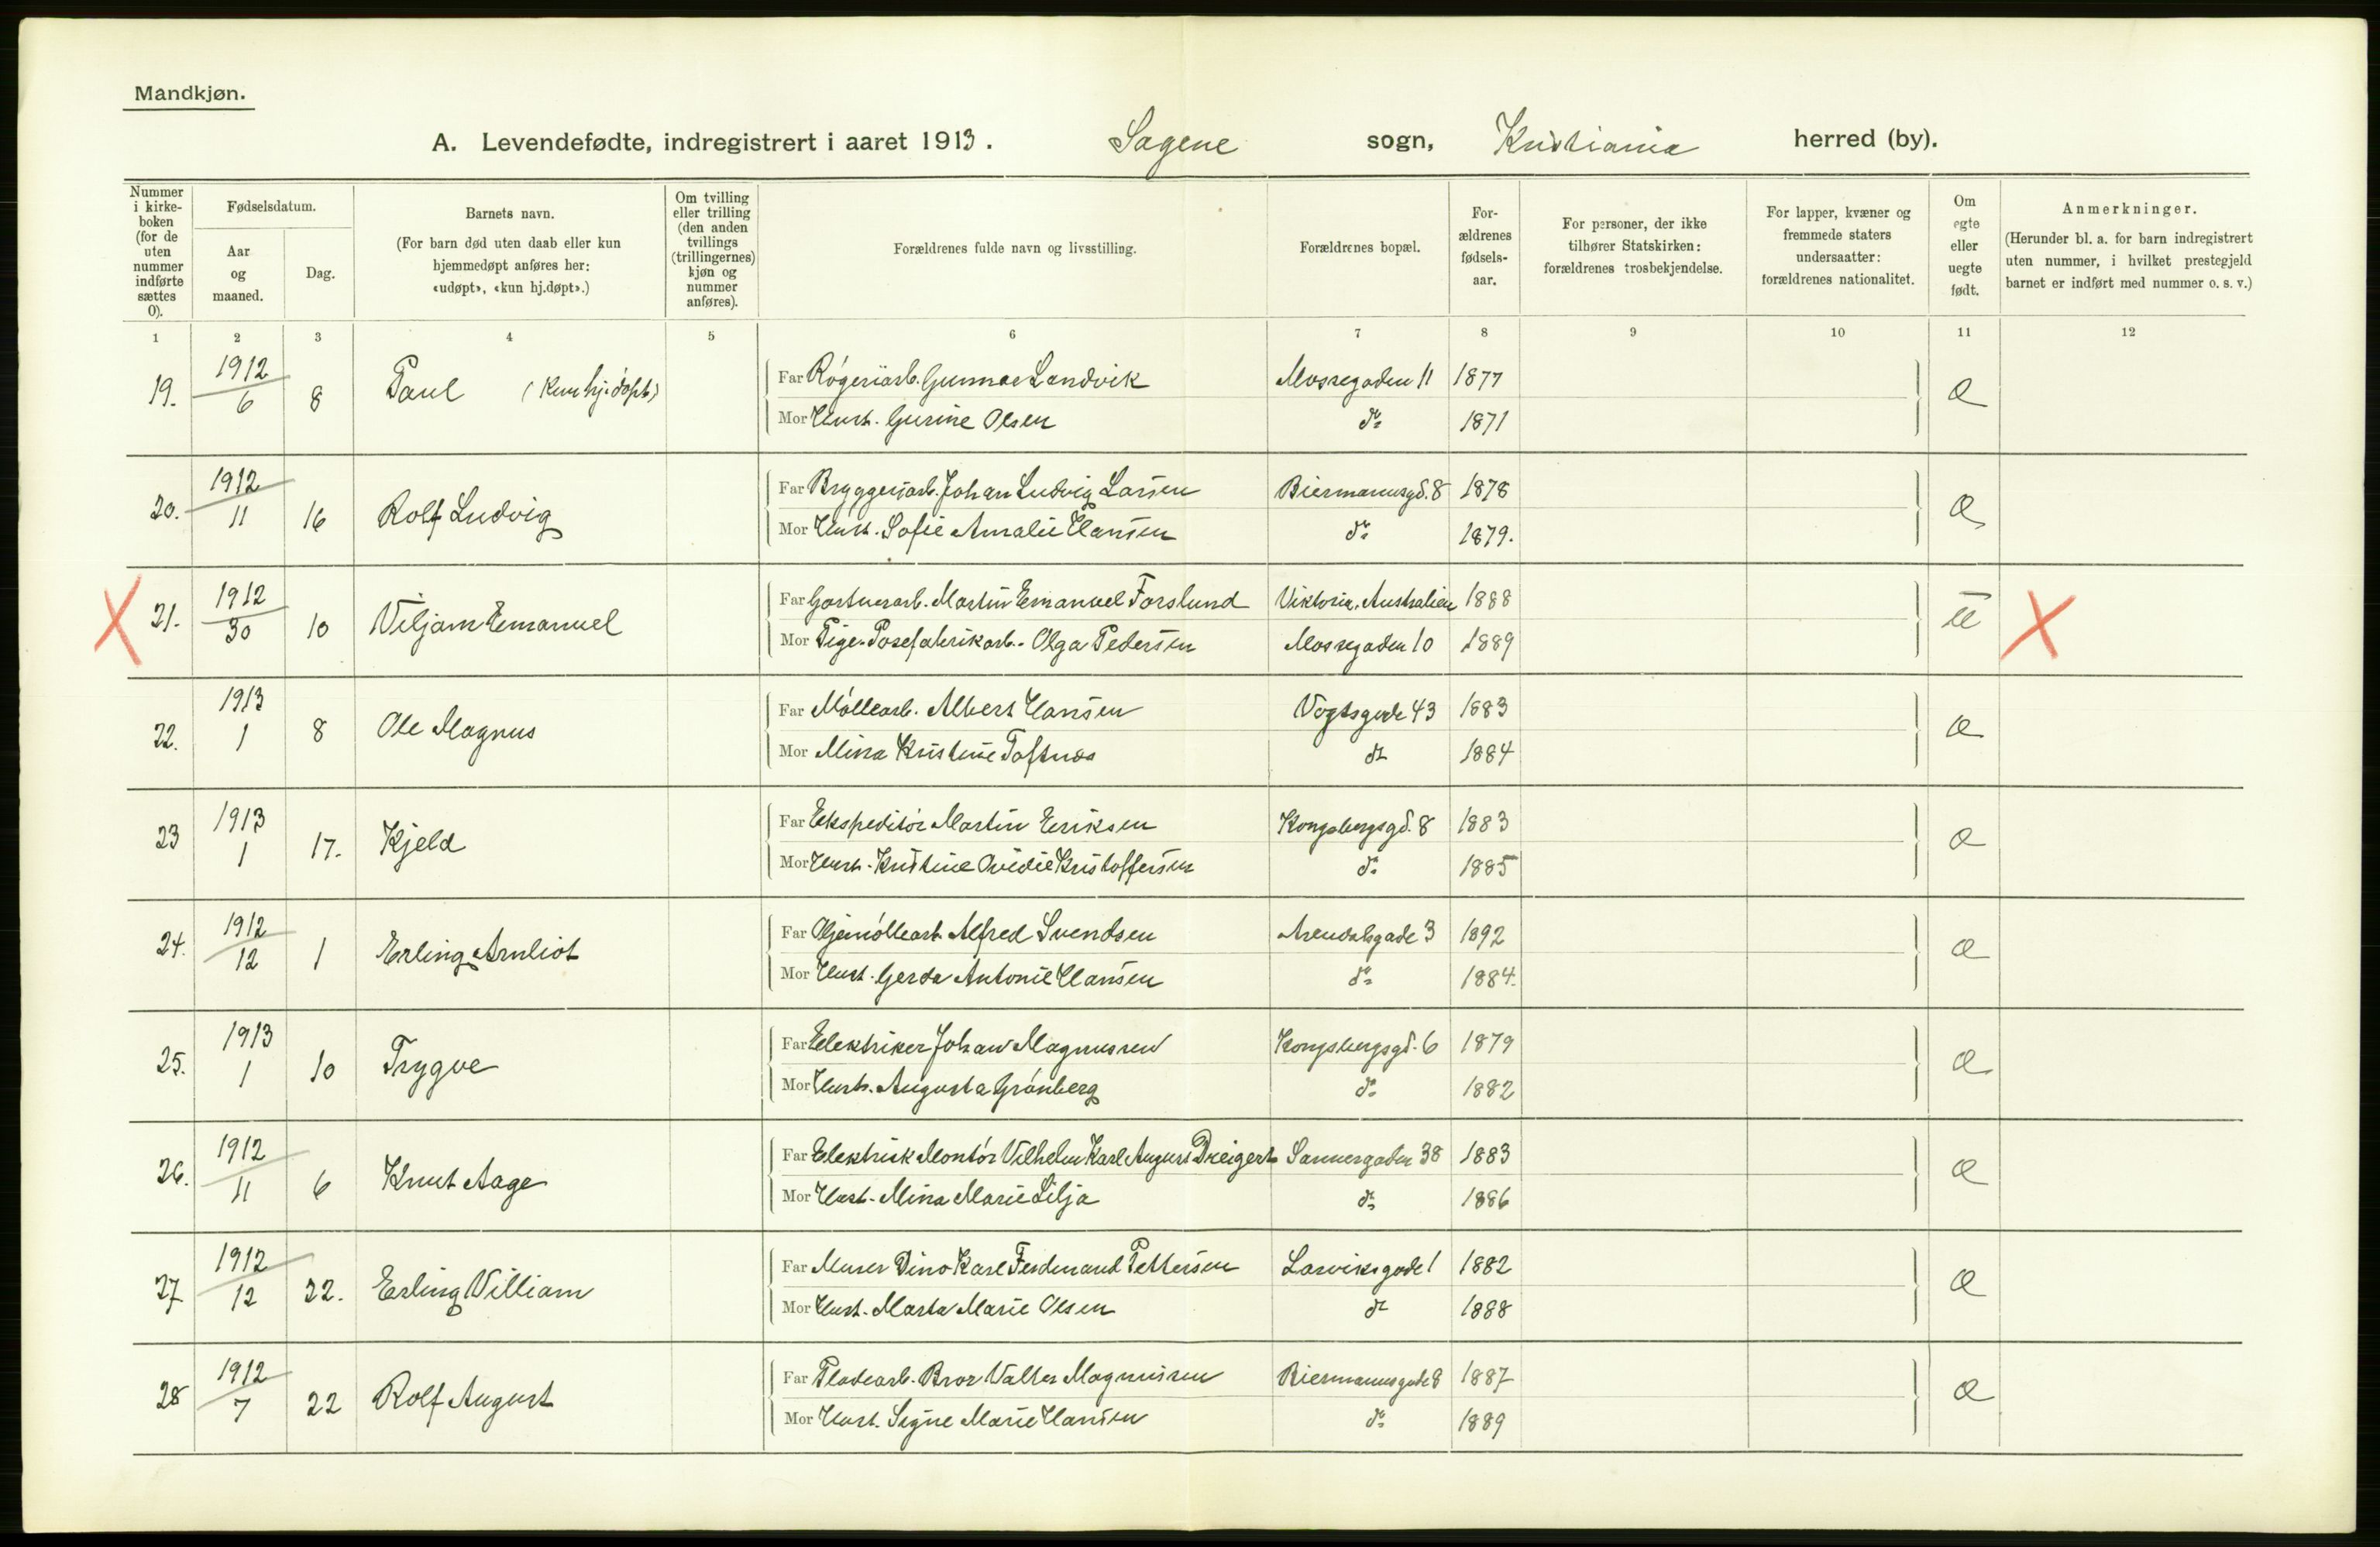 Mandkjøn.
A. Levendefødte, indregistrert i aaret 1913. Sagene sogn, Kristiania herred (by).
Nummer i kirke-boken (for de uten nummer indførte sættes 0).
Fødselsdatum.
Aar og maaned.
Dag.
Barnets navn.
(For barn død uten daab eller kun hjemmedøpt anføres her: «udøpt», «kun hj.døpt».)
Om tvilling eller trilling (den anden tvillings (trillingernes) kjøn og nummer anføres).
Forældrenes fulde navn og livsstilling.
Forældrenes bopæl.
For-ældrenes fødsels-aar.
For personer, der ikke tilhører Statskirken: forældrenes trosbekjendelse.
For lapper, kvæner og fremmede staters undersaatter: forældrenes nationalitet.
Om egte eller uegte født.
Anmerkninger.
(Herunder bl. a. for barn indregistrert uten nummer, i hvilket prestegjeld barnet er indført med nummer o. s. v.)
1 2 3 4 5 6 7 8 9 10 11 12
19. 1912 6 8 Paul (Kun hj.døpt) Far Røgeriarb. Gunnar Landvik Mossegaden 11 1877 Æ
Mor Hust. Gurine Olsen do 1871
20. 1912 11 16 Rolf Ludvig Far Bryggeriarb. Johan Ludvig Larsen Biermannsgd. 8 1878 Æ
Mor Hust. Sofie Amalie Hansen do 1879.
X 21. 1912 30 10 Viljam Emanuel Far Gartnerarb. Martin Emanuel Forslund Viktoria, Australien 1888 U X
Mor Pige. Posefabrikarb. Olga Pedersen Mossegaden 10 1889
22. 1913 1 8 Ole Magnus Far Møllearb. Albert Hansen Vogtsgade 43 1883 Æ
Mor Mina Kristine Toftnes do 1884
23 1913 1 17. Kjeld Far Ekspeditør Martin Eriksen Kongsbergsgd. 8 1883 Æ
Mor Hust. Kristine Ovidie Kristoffersen do 1885
24. 1912 12 1 Erling Arnliot Far Oljemøllearb. Alfred Svendsen Arendalsgade 3 1892 Æ
Mor Hust. Gerda Antonie Hansen do 1884.
25. 1913 1 10 Trygve Far Elektriker Johan Magnussen Kongsbergsgd. 6 1879 Æ
Mor Hust. Augusta Grønberg do 1882
26. 1912 11 6 Knut Aage Far Elektrisk Montør Vilhelm Karl August Dreigert Sannergaden 38 1883 Æ
Mor Hust. Mina Marie Lilja do 1886
27 1912 12 22. Erling William Far Murer Dino Karl Ferdinand Pettersen Larviksgade 1 1882 Æ
Mor Hust. Marta Marie Olsen do 1888
28 1912 7 22 Rolf August Far Pladearb. Bror Valter Magnussen Biermannsgade 8 1887 Æ
Mor Hust. Signe Marie Hansen do 1889